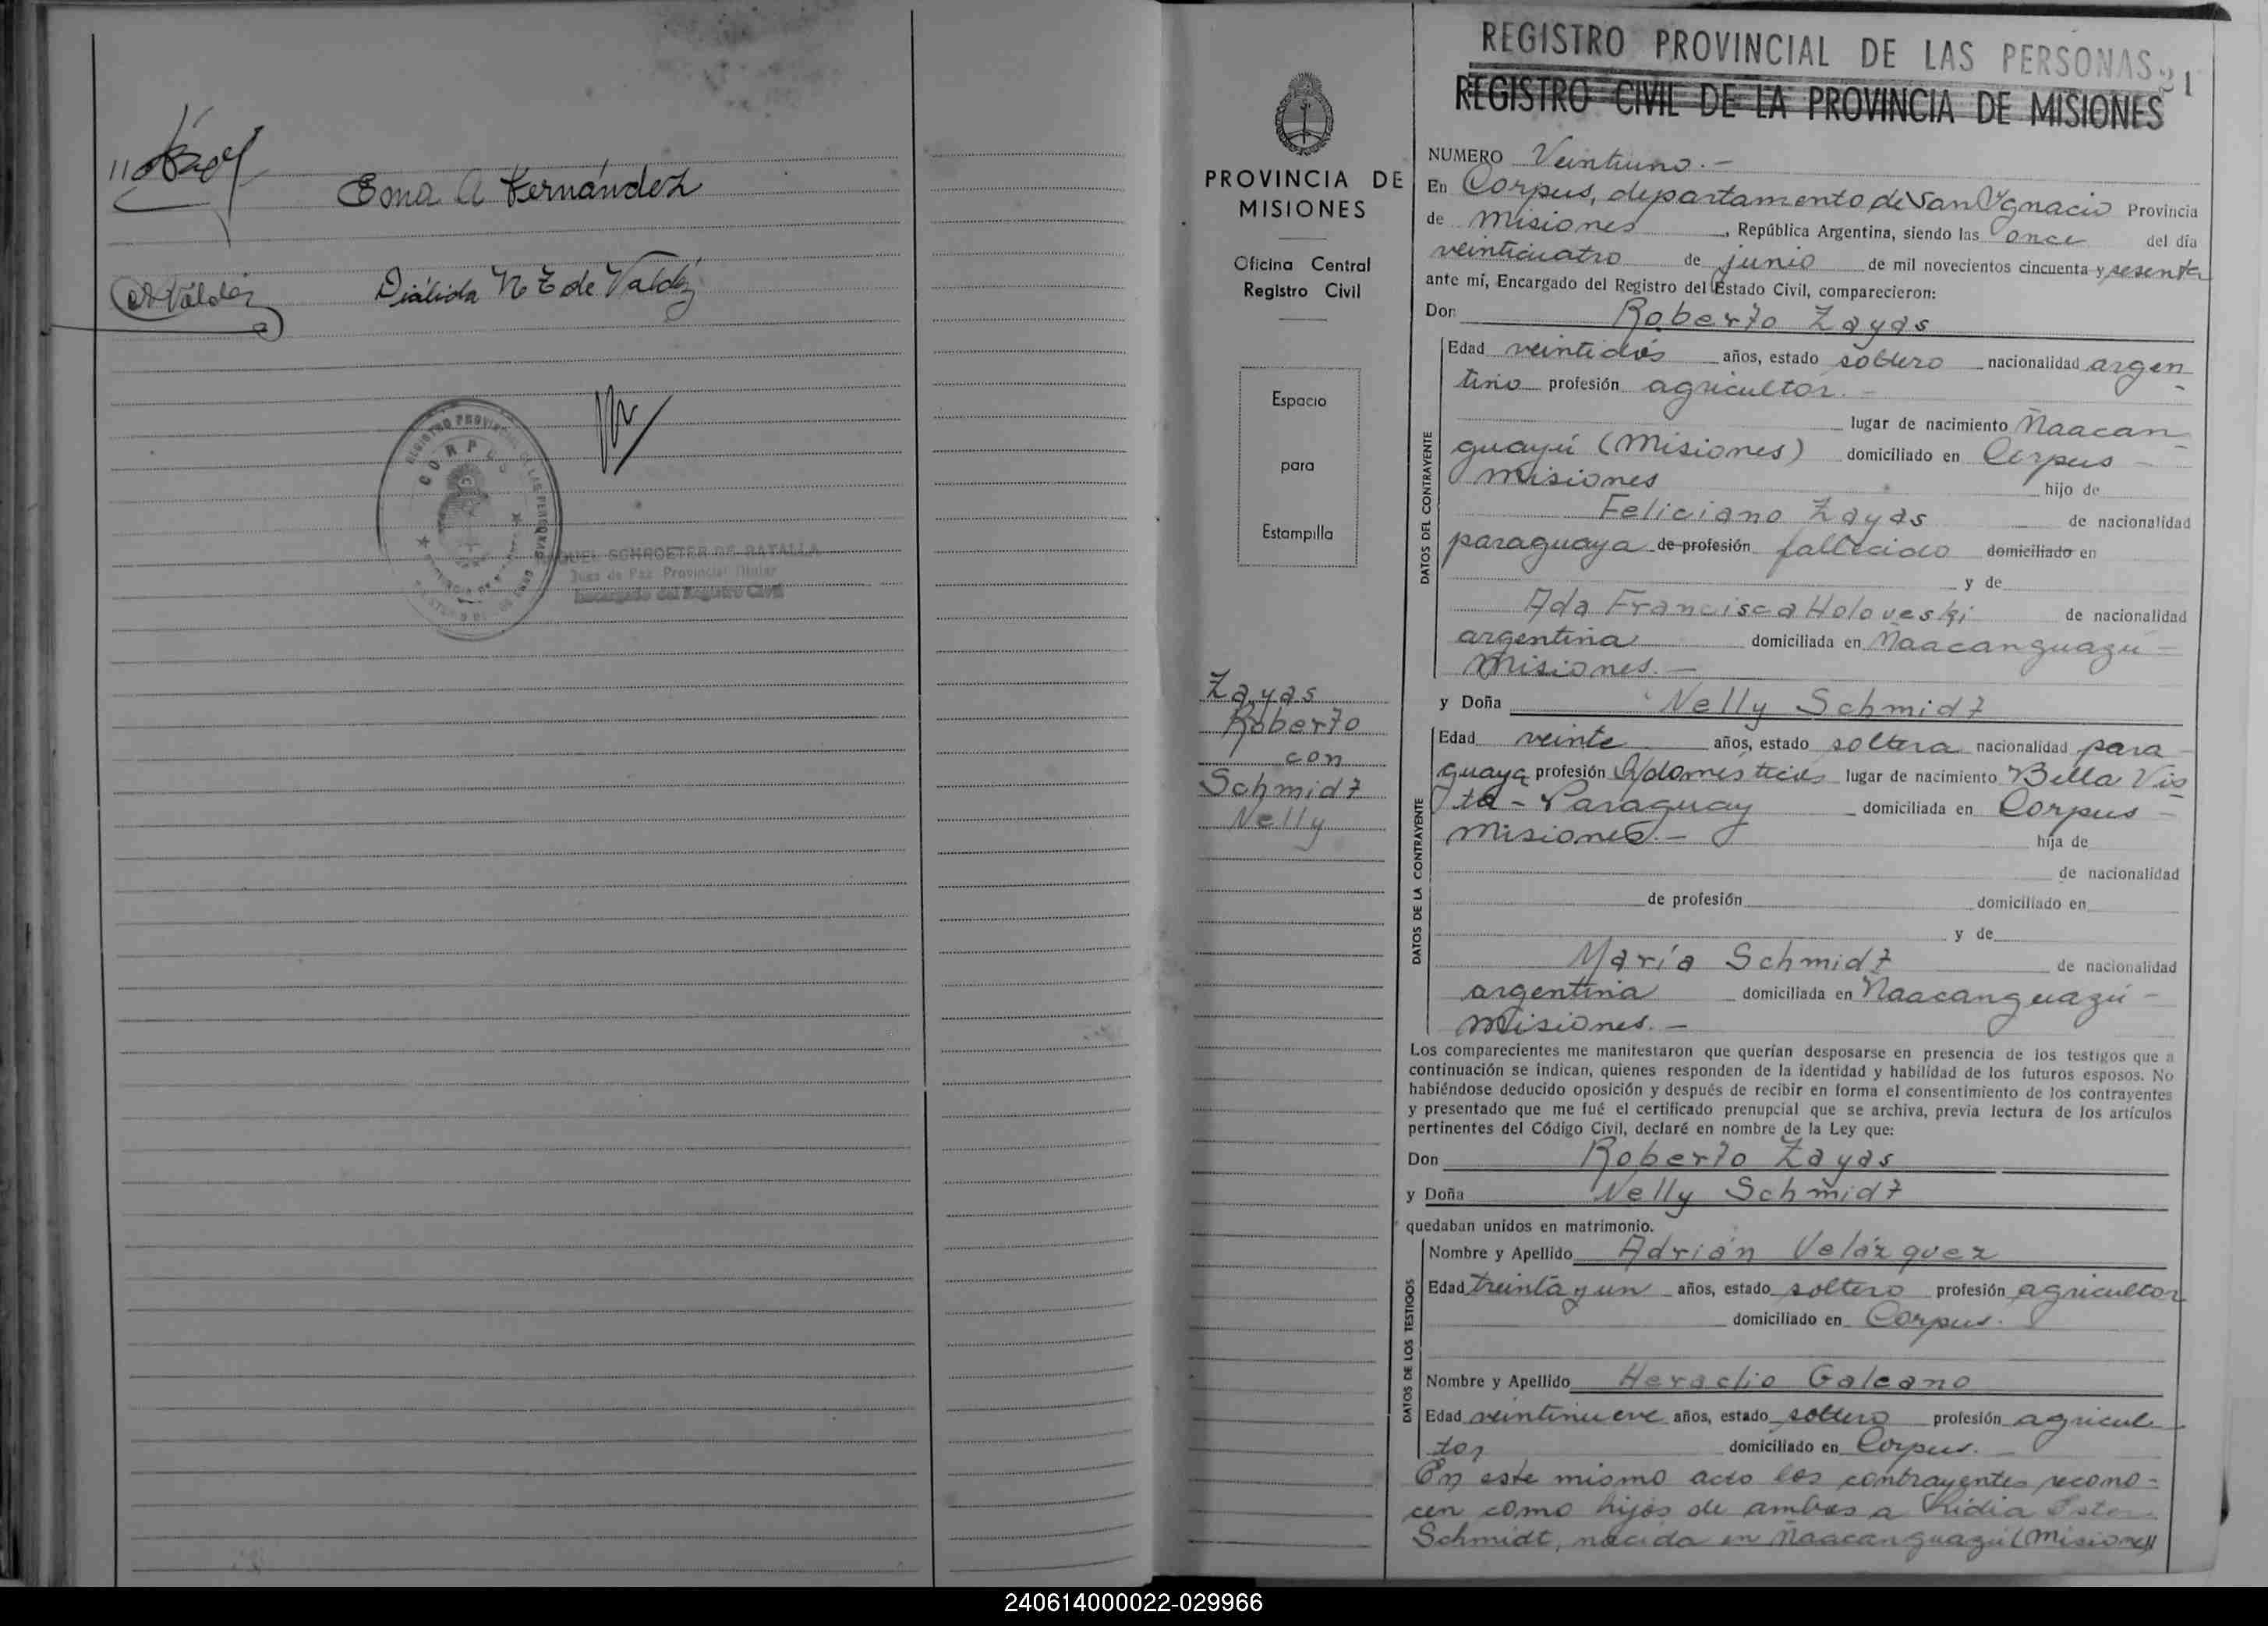 Ema A Fernández
Valdéz
Diálida N Z de Valdéz
REGISTRO PROVINCIAL DE LAS PERSONAS
CORPUS
RAQUEL SCHROETER DE BATALLA
Juez de Paz Provincial Titular
Encargado del Registro Civil
PROVINCIA DE
MISIONES
Oficina Central
Registro Civil
Espacio
para
Estampilla
Zayas
Roberto
con
Schmidt
Nelly
REGISTRO PROVINCIAL DE LAS PERSONAS
21
REGISTRO CIVIL DE LA PROVINCIA DE MISIONES
NUMERO Veintiuno.-
En Corpus, departamento de San Ygnacio Provincia
de Misiones, República Argentina, siendo las once del día
veinticuatro de junio de mil novecientos cincuenta y sesenta
ante mí, Encargado del Registro del Estado Civil, comparecieron:
Don Roberto Zayas
DATOS DEL CONTRAYENTE
Edad veintidós años, estado soltero nacionalidad argen
tino profesión agricultor.-
lugar de nacimiento Ñaacan
guazú (Misiones) domiciliado en Corpus -
Misiones hijo de
Feliciano Zayas de nacionalidad
paraguaya de profesión fallecido domiciliado en
y de
Ada Francisca Holoveski de nacionalidad
argentina domiciliada en Ñaacanguazú -
Misiones.-
y Doña Nelly Schmidt
DATOS DE LA CONTRAYENTE
Edad veinte años, estado soltera nacionalidad para
guaya profesión Q/domésticos lugar de nacimiento Bella Vis
ta - Paraguay domiciliada en Corpus -
Misiones.- hija de
de nacionalidad
de profesión domiciliado en
y de
María Schmidt de nacionalidad
argentina domiciliada en Ñaacanguazú -
Misiones.-
Los comparecientes me manifestaron que querían desposarse en presencia de los testigos que a
continuación se indican, quienes responden de la identidad y habilidad de los futuros esposos. No
habiéndose deducido oposición y después de recibir en forma el consentimiento de los contrayentes
y presentado que me fué el certificado prenupcial que se archiva, previa lectura de los artículos
pertinentes del Código Civil, declaré en nombre de la Ley que:
Don Roberto Zayas
y Doña Nelly Schmidt
quedaban unidos en matrimonio.
DATOS DE LOS TESTIGOS
Nombre y Apellido Adrián Velázquez
Edad treinta y un años, estado soltero profesión agricultor
domiciliado en Corpus.
Nombre y Apellido Heraclio Galeano
Edad veintinueve años, estado soltero profesión agricul
tor domiciliado en Corpus. -
En este mismo acto los contrayentes recono-
cen como hijos de ambos a Lidia Ester
Schmidt, nacida en Ñaacanguazú (Misiones)
240614000022-029966